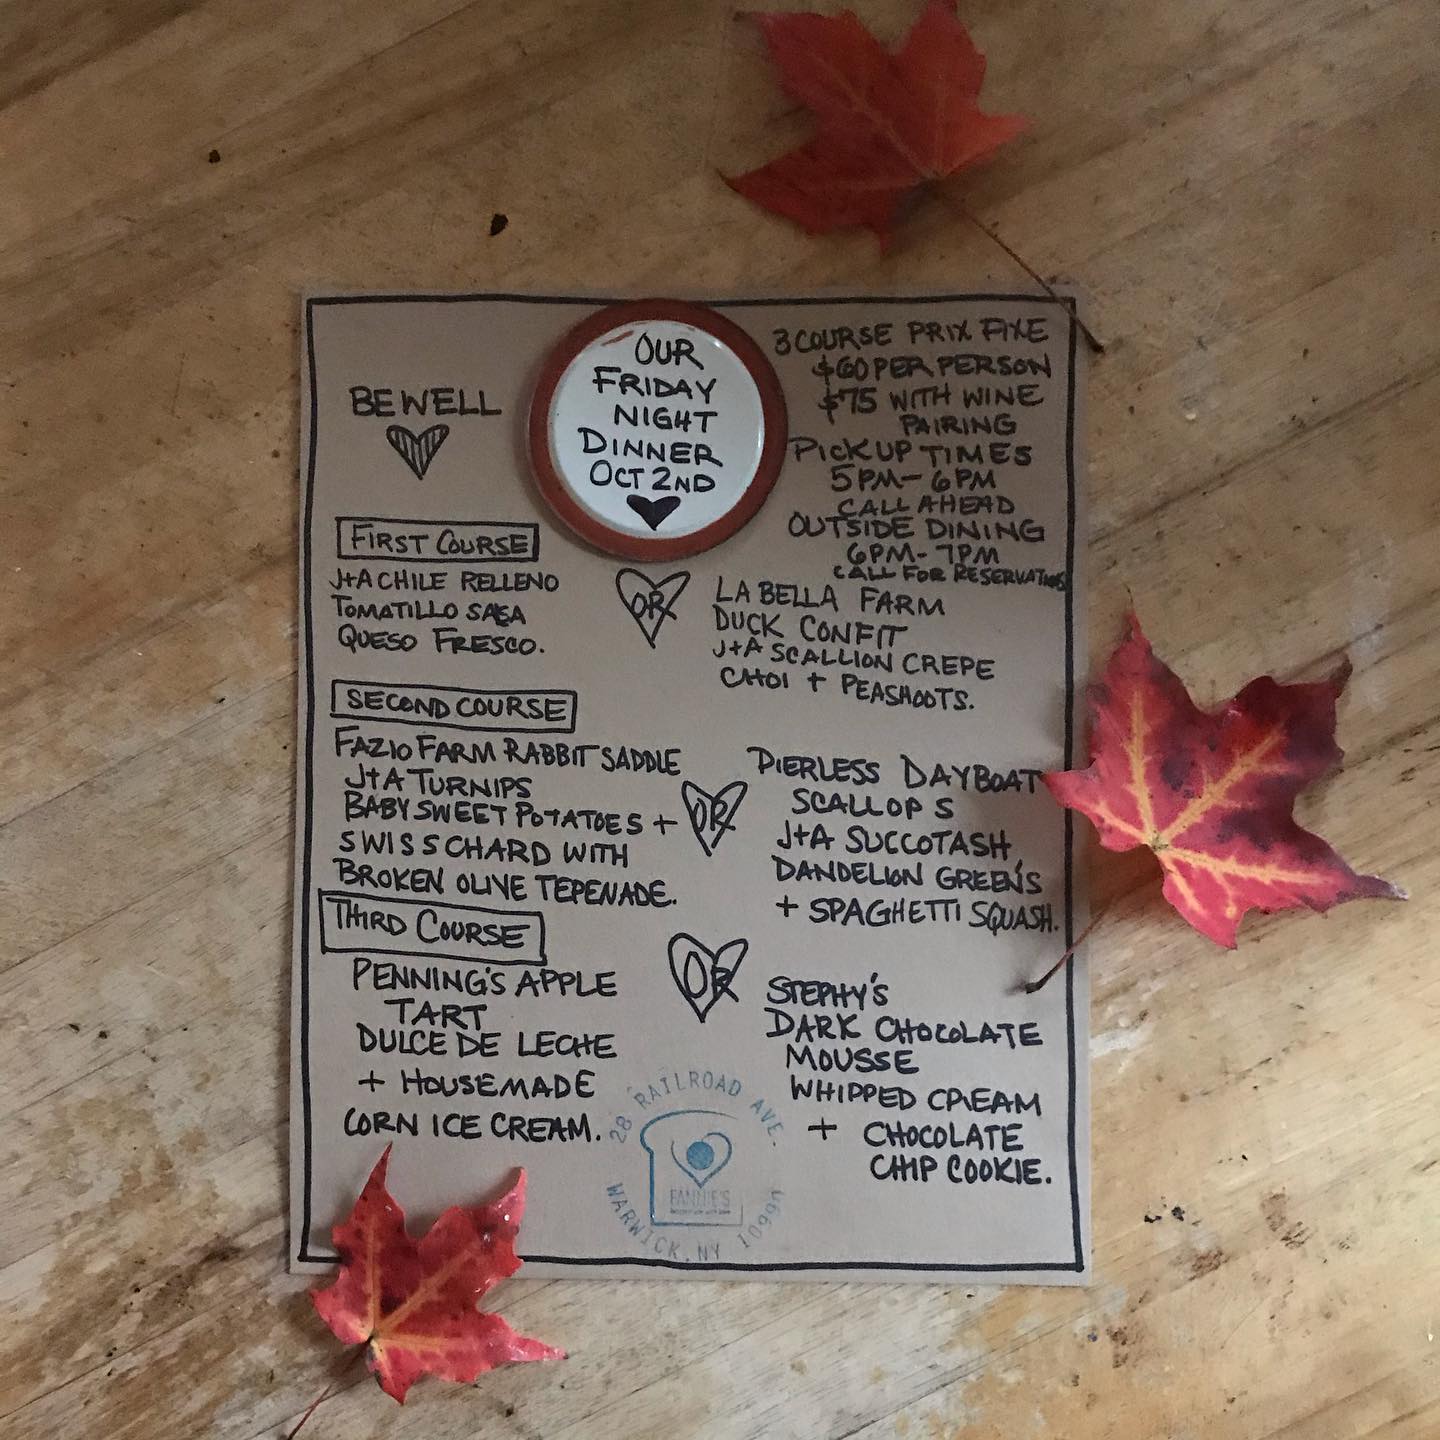 OUR
FRIDAY
NIGHT
DINNER
OCT 2ND
BE WELL
3 COURSE PRIX FIXE
$60 PER PERSON
$75 WITH WINE
PAIRING
PICK UP TIMES
5PM-6PM
CALL AHEAD
OUTSIDE DINING
6PM-7PM
CALL FOR RESERVATIONS
FIRST COURSE
J+A CHILE RELLENO
TOMATILLO SALSA
QUESO FRESCO.
OR
LA BELLA FARM
DUCK CONFIT
J+A SCALLION CREPE
CHOI + PEASHOOTS.
SECOND COURSE
FAZIO FARM RABBIT SADDLE
J+A TURNIPS
BABY SWEET POTATOES +
SWISS CHARD WITH
BROKEN OLIVE TEPENADE.
OR
PIERLESS DAYBOAT
SCALLOPS
J+A SUCCOTASH
DANDELION GREENS
+ SPAGHETTI SQUASH.
THIRD COURSE
PENNING'S APPLE
TART
DULCE DE LECHE
+ HOUSEMADE
CORN ICE CREAM.
OR
STEPHY'S
DARK CHOCOLATE
MOUSSE
WHIPPED CREAM
+ CHOCOLATE
CHIP COOKIE.
28 RAILROAD AVE.
FANNIE'S
WARWICK, NY 10990